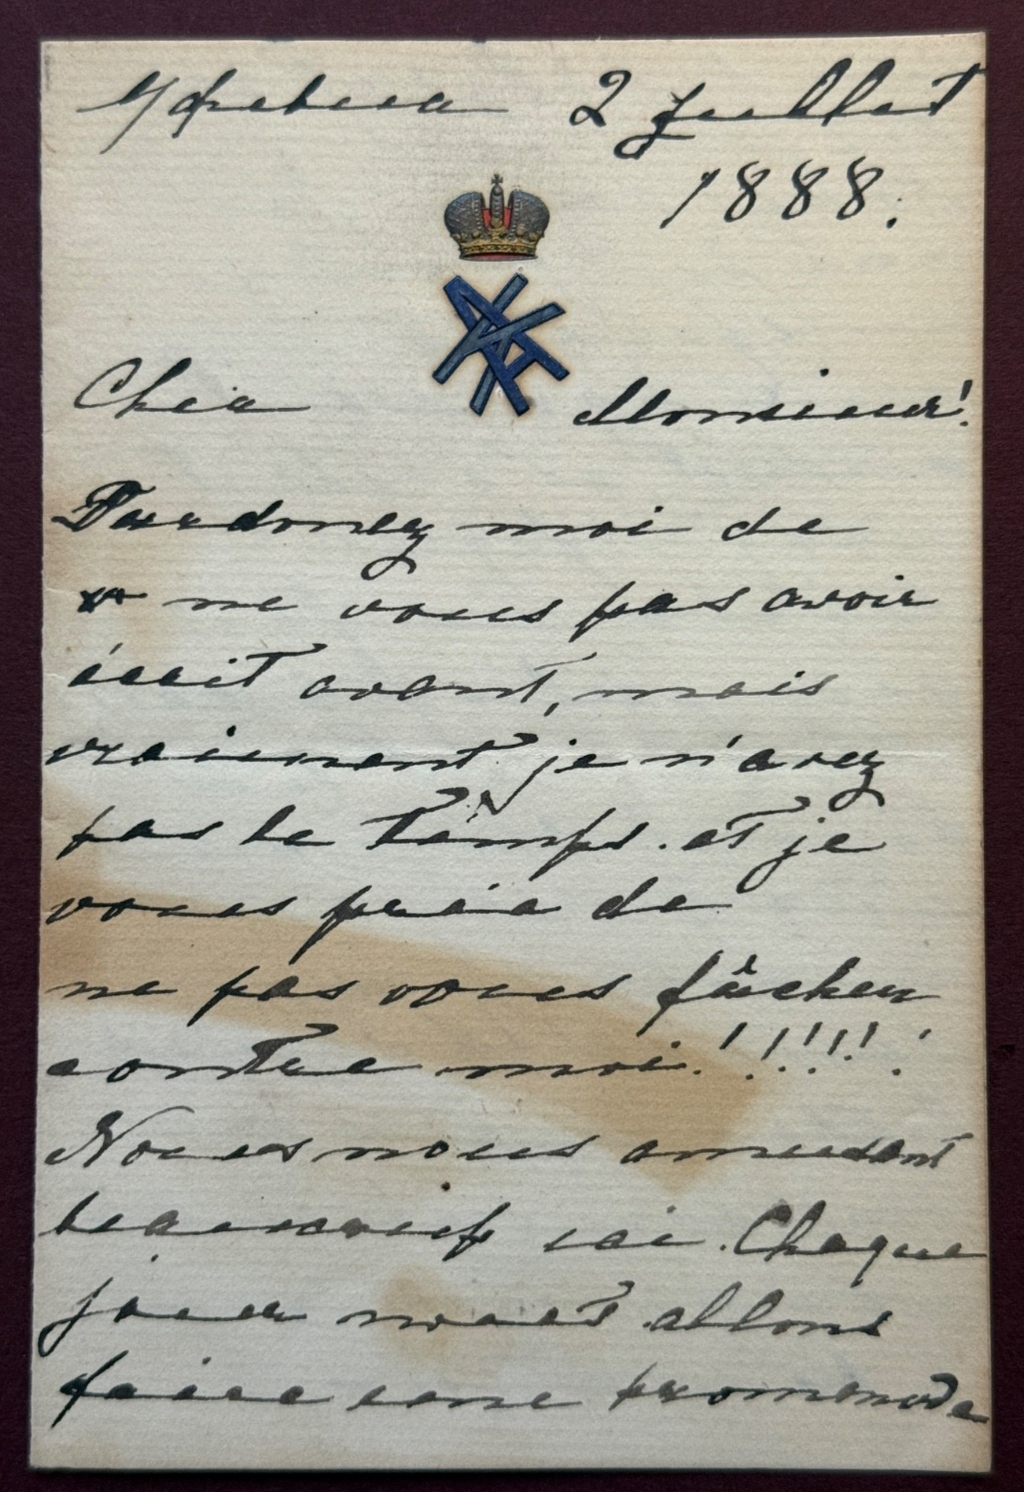 2 Juillet
1888.
Cher Monsieur!
Pardonez moi de
ne vous pas avoir
écrit avant, mais
vraiement je n'avez
pas le temps. et je
vous prie de
ne pas vous fâcher
contre moi!!!!!!
Nous nous amusant
beaucoup ici. Chaque
jour nous allons
faire une promenade